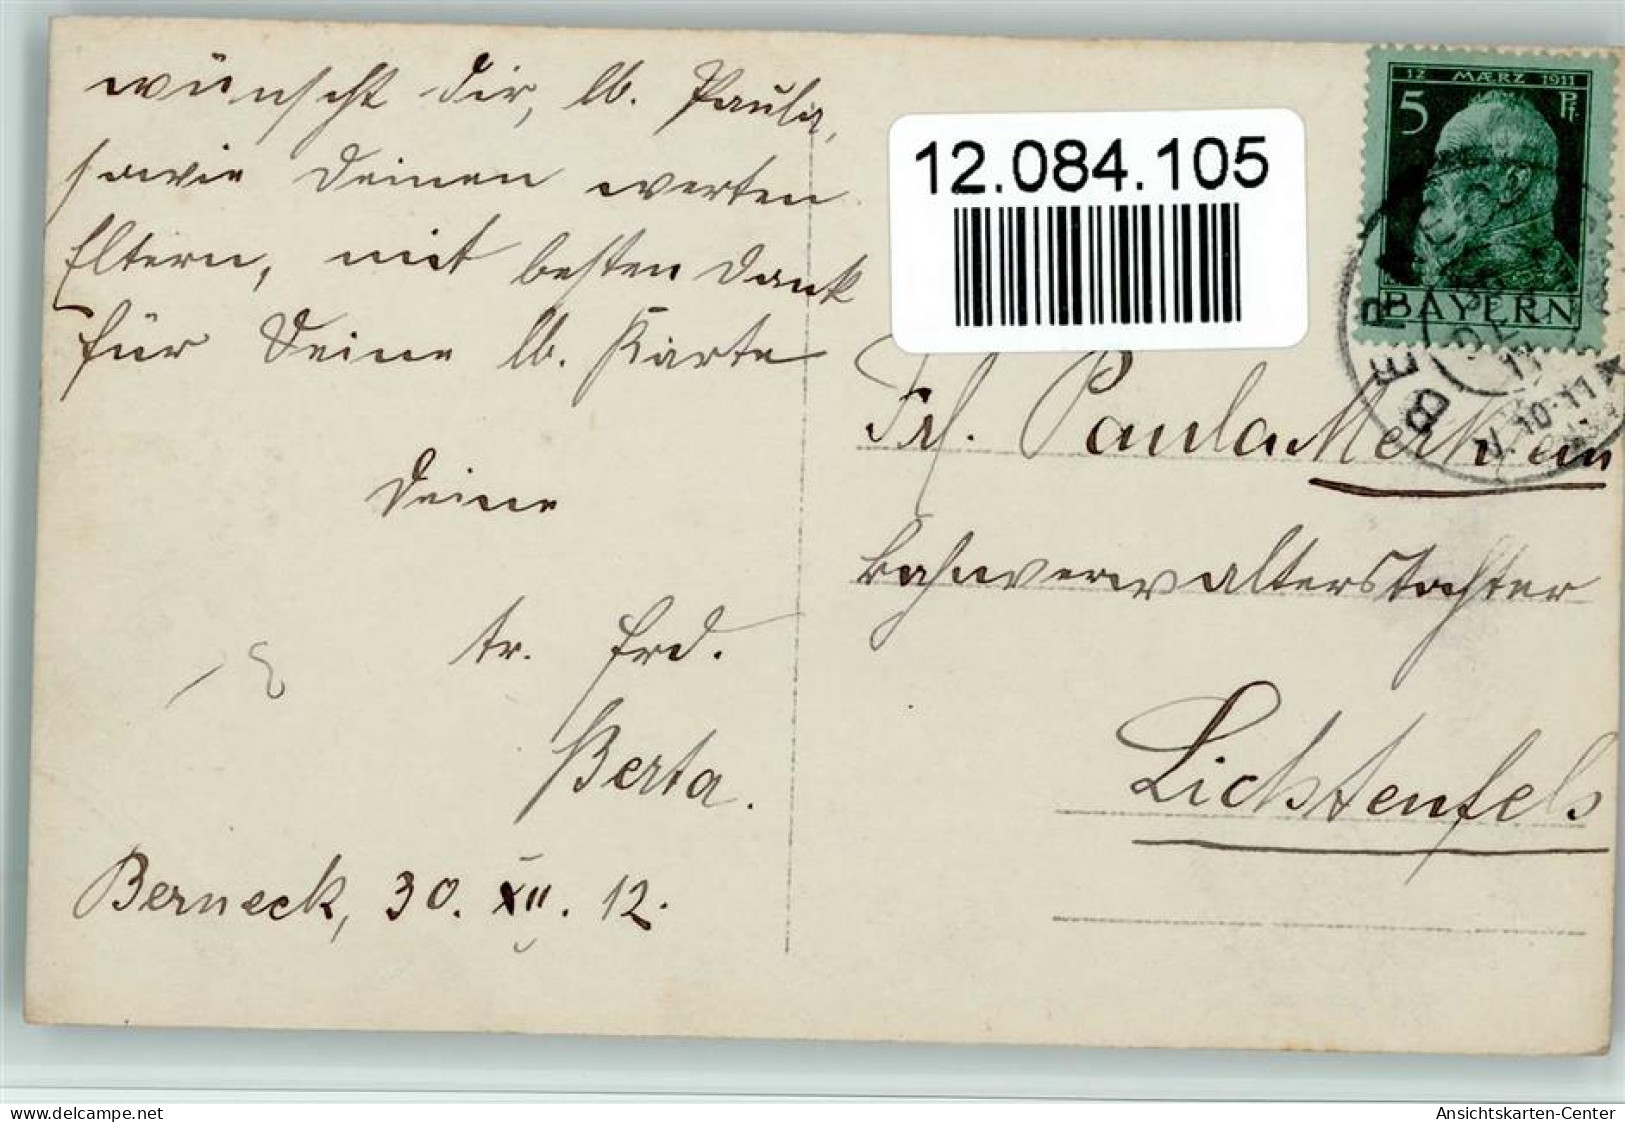 wünscht Dir, lb. Paula,
sowie Deinen werten
Eltern, mit besten Dank
für Deine lb. Karte
Deine
tr. Frd.
Berta.
Berneck, 30. XII. 12.
12.084.105
12. MÆRZ 1911
5 Pf.
BAYERN
BERNECK
30 DEZ
V. 10-11
Frl. Paula
Bahnverwalterstochter
Lichtenfels
delcampe.net
Ansichtskarten-Center